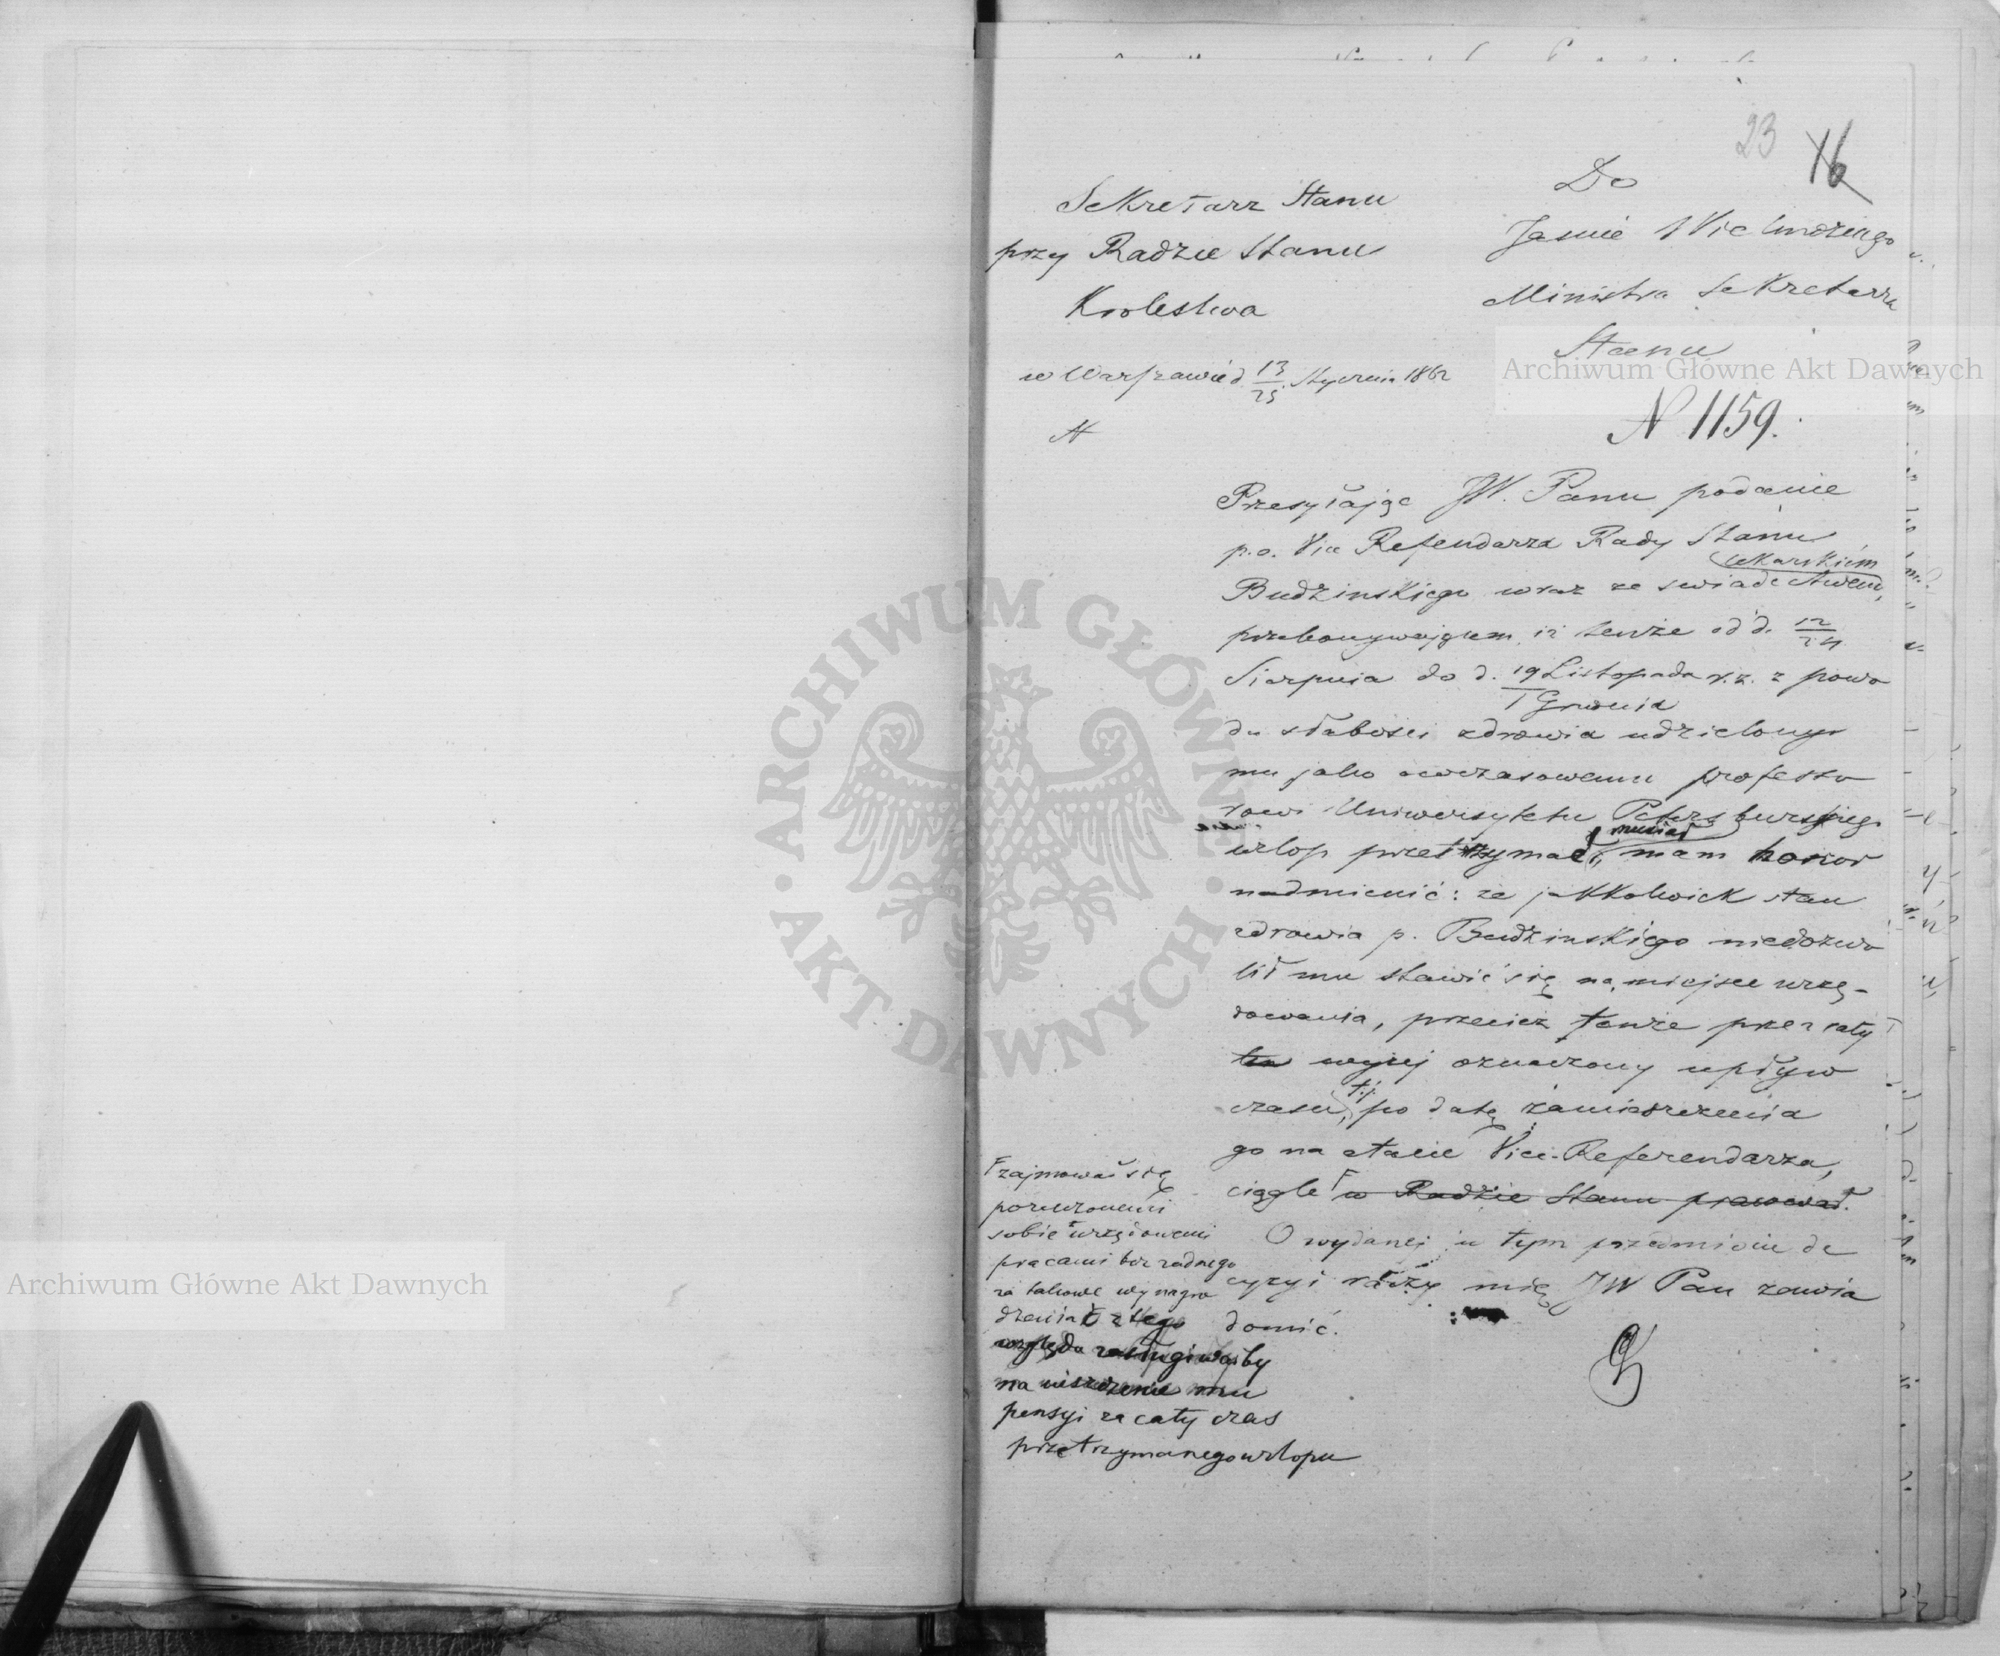 23 16
Sekretarz Stanu
przy Radzie Stanu
Krolestwa
w Warszawie d. 13/25 Stycznia 1862
N
Do
Jasnie Wielmożnego
Ministra Sekretarza
Stanu
N 1159.
Przesyłając JW. Panu podanie
p.o. Vice Referendarza Rady Stanu
lekarskiém
Budzinskiego wraz ze swiadectwem,
przekonywającem iż tenże od d. 12/24
Sierpnia do d. 19 Listopada r.z. z powo
1 Grudnia
du słabości zdrowia udzielony
mu jako owczasowemu professo
rowi Uniwersytetu Petersburskiego
musiał
urlop przetrzymać, mam honor
nadmienić: że jakkolwiek stan
zdrowia p. Budzinskiego niedozwo
lił mu stawić się na miejsce urzę-
dowania, przecież tenże przez cały
ten wyżej oznaczony upływ
t.j.
czasu, po datę zamieszczenia
go na etacie Vice-Referendarza,
ciągle w Radzie Stanu pracował.
zajmował się
poruczonemi
sobie urzędowemi
pracami bez żadnego
za takowe wynagro
dzenia z tego
względu zasługiwałby
na uiszczenie mu
pensyi za cały czas
przetrzymanego urlopu
O wydanej w tym przedmiocie de
cyzyi raczy mię JW Pan zawia
domić.
Archiwum Główne Akt Dawnych
Archiwum Główne Akt Dawnych
ARCHIWUM GŁÓWNE
AKT DAWNYCH